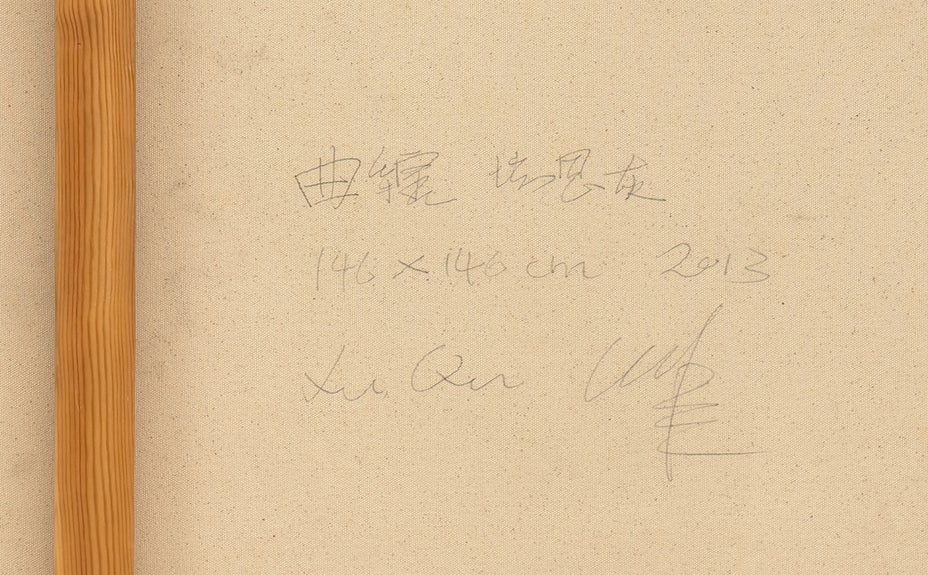 曲缠 培恩灰
146 × 146 cm 2013
Xu. Qu